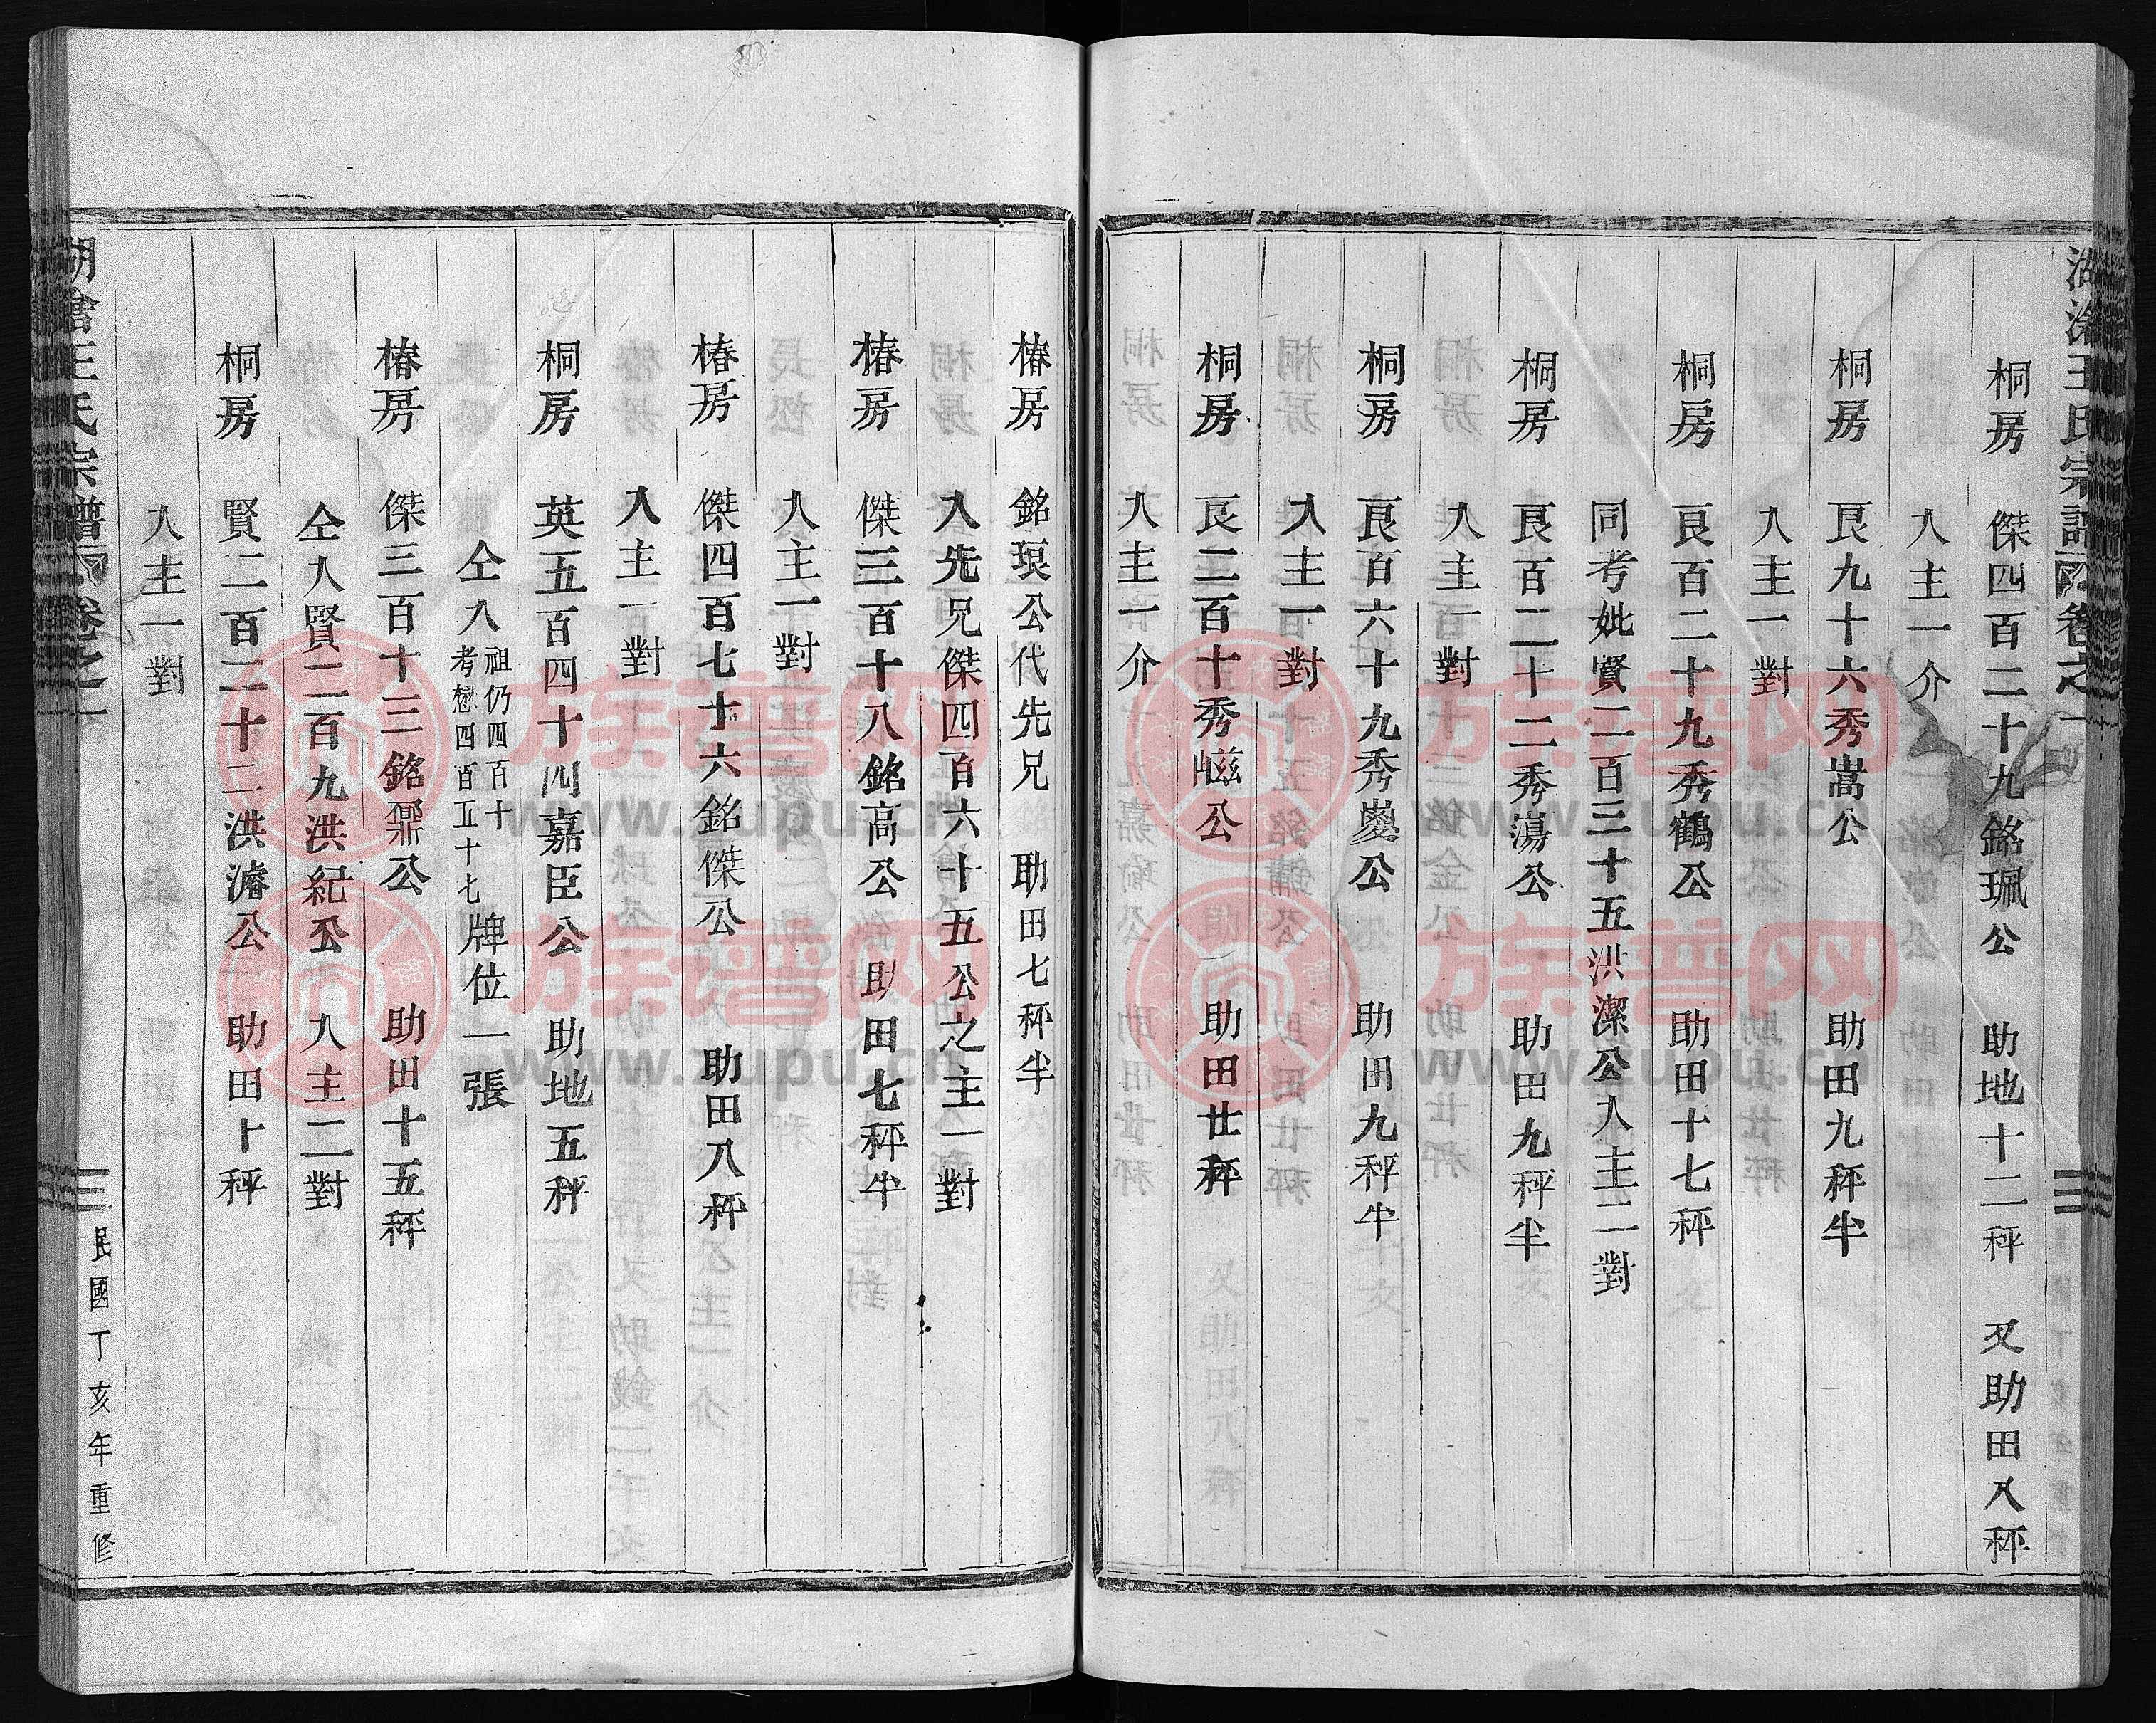 王氏宗譜 卷之一
桐房 傑四百二十九銘珮公 助地十二秤 又助田八秤
入主一介
桐房 良九十六秀嵩公 助田九秤半
入主一對
桐房 良百二十九秀鶴公 助田十七秤
同考妣賢二百三十五洪潔公入主二對
桐房 良百二十二秀蕩公 助田九秤半
入主一對
桐房 良百六十九秀公 助田九秤半
入主一對
桐房 良二百十秀公 助田廿秤
入主一介
椿房 銘公代先兄 助田七秤半
入先兄傑四百六十五公之主一對
椿房 傑三百十八銘高公 助田七秤半
入主一對
椿房 傑四百七十六銘傑公 助田八秤
入主一對
桐房 英五百四十四嘉臣公 助地五秤
仝入祖仍四百十考愬四百五十七牌位一張
椿房 傑三百十三銘鼎公 助田十五秤
仝入賢二百九洪紀公 入主二對
桐房 賢二百二十二洪濬公 助田十秤
入主一對
王氏宗譜 卷之一 三 民國丁亥年重修
族譜网
www.zupu.cn